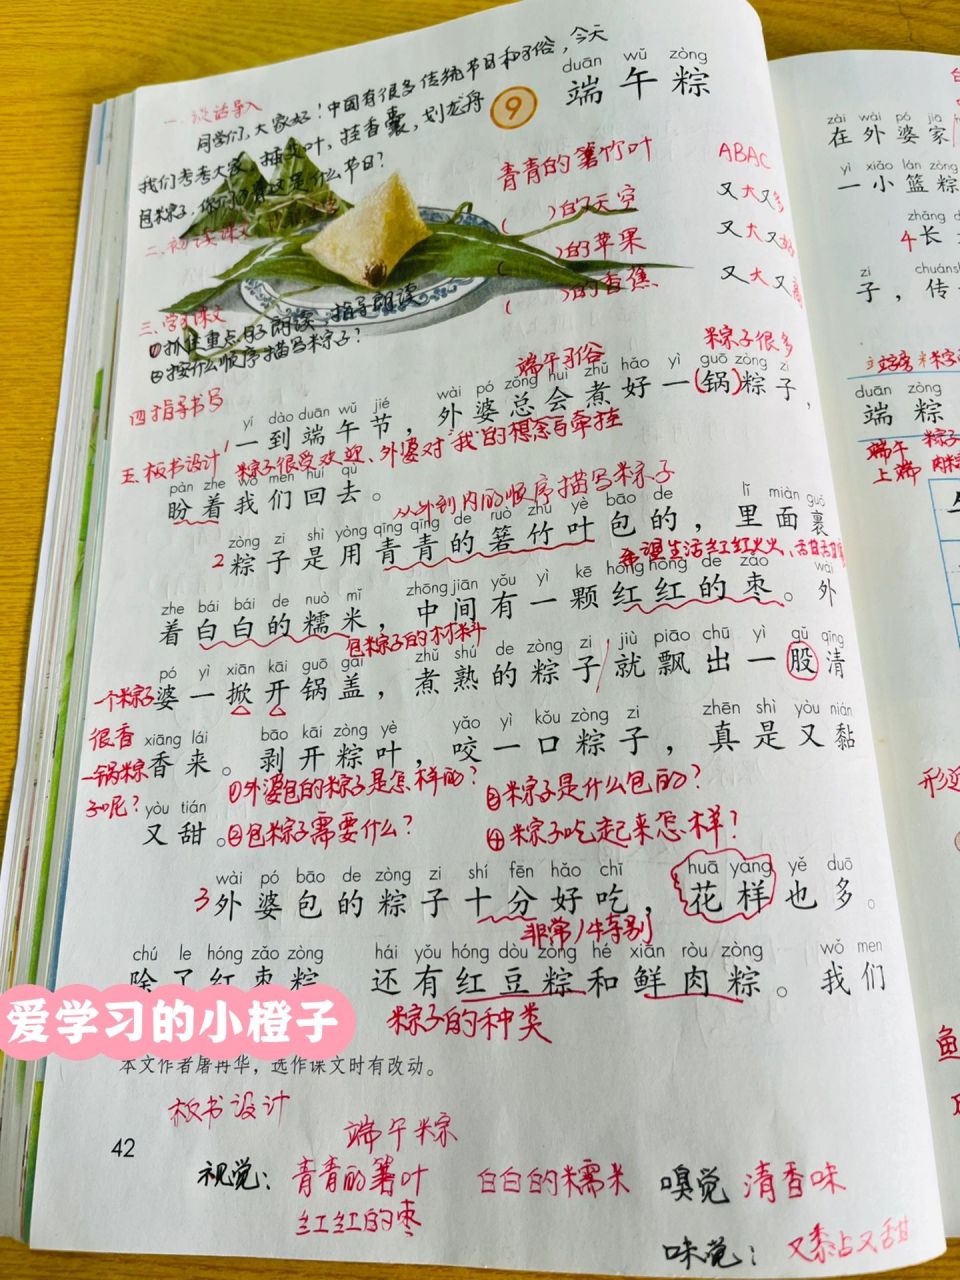 一、谈话导入
同学们,大家好!中国有很多传统节日和习俗,今天
我们考考大家,插艾叶,挂香囊,划龙舟
包粽子,你们知道这是什么节日?
二、初读课文
三、学习课文
①抓住重点句子朗读,指导朗读
②按什么顺序描写粽子?
四、指导书写
五、板书设计
duān wǔ zòng
9 端午粽
青青的箬竹叶 ABAC
( )的天空 又大又多
( )的苹果 又大又好
( )的香蕉 又大又高
端午习俗 粽子很多
yí dào duān wǔ jié wài pó zǒng huì zhǔ hǎo yì guō zòng zi
1 一到端午节,外婆总会煮好一(锅)粽子,
粽子很受欢迎、外婆对“我”的想念与牵挂
pàn zhe wǒ men huí qù
盼着我们回去。
从外到内的顺序描写粽子
zòng zi shì yòng qīng qīng de ruò zhú yè bāo de lǐ miàn guǒ
2 粽子是用青青的箬竹叶包的,里面裹
希望生活红红火火、甜甜蜜蜜
zhe bái bái de nuò mǐ zhōng jiān yǒu yì kē hóng hóng de zǎo wài
着白白的糯米,中间有一颗红红的枣。外
包粽子的材料
pó yì xiān kāi guō gài zhǔ shú de zòng zi jiù piāo chū yì gǔ qīng
婆一掀开锅盖,煮熟的粽子就飘出一股清
一个粽子
很香
一锅粽
子呢?
xiāng lái bāo kāi zòng yè yǎo yì kǒu zòng zi zhēn shì yòu nián
香来。剥开粽叶,咬一口粽子,真是又黏
①外婆包的粽子是怎样的? ③粽子是什么包的?
yòu tián
又甜。
②包粽子需要什么? ④粽子吃起来怎样?
wài pó bāo de zòng zi shí fēn hǎo chī huā yàng yě duō
3 外婆包的粽子十分好吃,花样也多。
非常/特别
chú le hóng zǎo zòng hái yǒu hóng dòu zòng hé xiān ròu zòng wǒ men
除了红枣粽,还有红豆粽和鲜肉粽。我们
粽子的种类
爱学习的小橙子
本文作者屠再华,选作课文时有改动。
板书设计
端午粽
42
视觉: 青青的箬叶 白白的糯米 嗅觉 清香味
红红的枣
味觉: 又黏又甜
zài wài pó jiā
在外婆家
yì xiǎo lán zòng
一小篮粽
zhǎng d
4 长
zi chuánsh
子,传
duān zòng
端 粽
端午 粽子
上端 肉粽